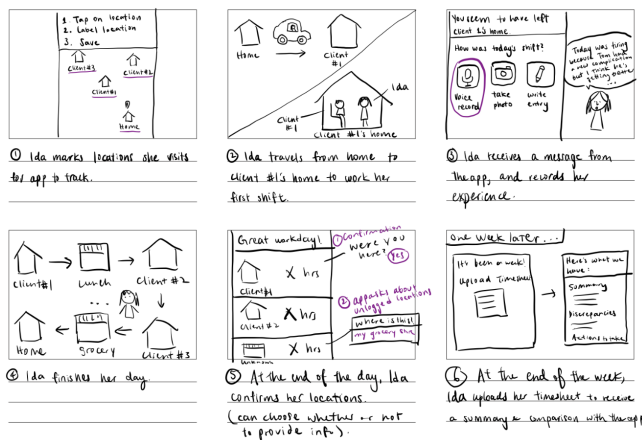 1. Tap on location
2. Label location
3. Save
Client#3
Client#2
Client#1
Home
① Ida marks locations she visits
for app to track.
Home
Client
#1
Ida
Client
#1
Client #1's home
② Ida travels from home to
client #1's home to work her
first shift.
You seem to have left
client 1's home.
How was today's shift?
Voice
record
take
photo
write
entry
Today was tiring
because Tom had
a new complication
but I think he's
getting better
...
③ Ida receives a message from
the app, and records her
experience.
Client#1
Lunch
Client #2
...
Home
Grocery
Client #3
④ Ida finishes her day
Great workday!
① Confirmation
were you
here?
Yes
X hrs
Client#1
② app asks about
unlogged locations
X hrs
Client #2
where is this?
my grocery store
X hrs
Unknown
⑤ At the end of the day, Ida
confirms her locations.
(can choose whether or not
to provide info).
One week later...
It's been a week!
Upload Timesheet
Here's what we
have:
Summary
Discrepancies
Actions to take
⑥ At the end of the week,
Ida uploads her timesheet to receive
a summary & comparison with the app